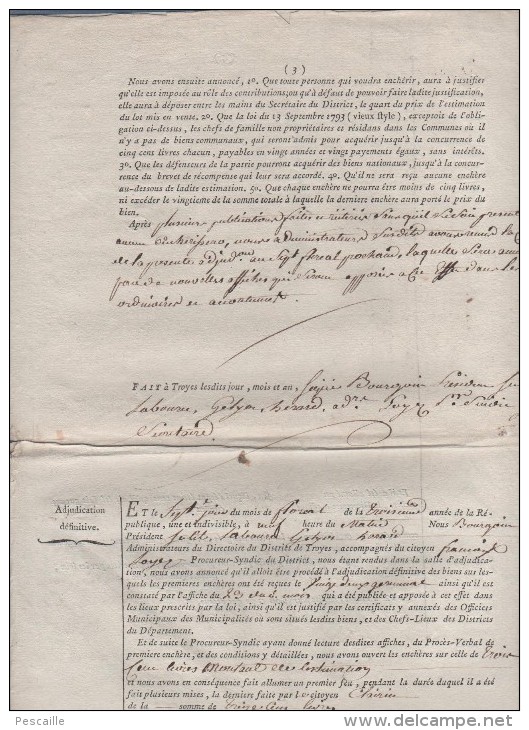 ( 3 )
Nous avons ensuite annoncé, 1o. Que toute personne qui voudra enchérir, aura à justifier
qu'elle est imposée au rôle des contributions; ou qu'à défaut de pouvoir faire ladite justification,
elle aura à déposer entre les mains du Secrétaire du District, le quart du prix de l'estimation
du lot mis en vente. 2o. Que la loi du 13 Septembre 1793 (vieux style), exceptois de l'obli-
gation ci-dessus, les chefs de famille non propriétaires et résidans dans les Communes où il
n'y a pas de biens communaux, qui seront admis pour acquérir jusqu'à la concurrence de
cinq cent livres chacun, payables en vingt années et vingt payements égaux, sans intérêts.
3o. Que les défenseurs de la patrie pourront acquérir des biens nationaux, jusqu'à la concur-
rence du brevet de récompense qui leur sera accordé. 4o. Qu'il ne sera reçu aucune enchère
au-dessous de ladite estimation. 5o. Que chaque enchère ne pourra être moins de cinq livres,
ni excéder le vingtième de la somme totale à laquelle la dernière enchère aura porté le prix du
bien.
Après plusieurs publications faites et réitérées sans qu'il se soit présenté
aucun enchérisseur, nous administrateurs susdits avons remis la
de la présente adjudon au Sept floréal prochain, laquelle sera
par de nouvelles affiches qui seront apposées à cet Effet dans les
ordinaires et accoutumés.
FAIT à Troyes lesdits jour, mois et an, Bourgoin Président
Laboure, Gelyon herard, adrs
Secrétaire.
Adjudication
définitive.
ET le Sept.e jour du mois de floréal de la troisieme année de la Ré-
publique, une et indivisible, à neuf heure du Matin Nous Bourgoin
Président Laboure Gelyon herard
Administrateurs du Directoire du District de Troyes, accompagnés du citoyen
Procureur-Syndic du District, nous étant rendus dans la salle d'adjudica-
tion, nous avons annoncé qu'il alloit être procédé à l'adjudication définitive des biens sur les-
quels les premieres enchères ont été reçues le germinal ainsi qu'il est
constaté par l'affiche du 23 dud. mois qui a été publiée et apposée à cet effet dans les
lieux prescrits par la loi, ainsi qu'il est justifié par les certificats y annexés des Officiers
Municipaux des Municipalités où sont situés lesdits biens, et des Chefs-Lieux des Districts
du Département.
Et de suite le Procureur-Syndic ayant donné lecture desdites affiches, du Procès-Verbal de
premiere enchère, et des conditions y détaillées, nous avons ouvert les enchères sur celle de trois
cent livres Montant de l'estimation
et nous avons en conséquence fait allumer un premier feu, pendant la durée duquel il a été
fait plusieurs mises, la derniere faite par le citoyen
de la somme de livres
Pescaille
www.delcampe.net